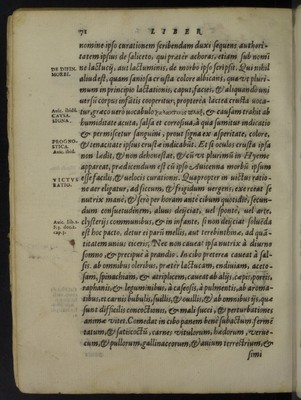 72 LIBER
nomine ipso curationem scribendam duxi sequens authori-
tatem ipsius de saliceto, qui præter achoras, etiam sub nomi
ne lactucij, aut lactuminis, de morbo ipso scripsit. Qui nihil
aliud est, quam saniosa crusta colore albicans, quæ ut pluri-
mum in principio lactationis, caput, faciei, & aliquando uni
versi corpus infātis cooperitur, propterea lactea crusta uoca-
tur, græco uero uocabulo & causam trahit ab
humiditate acuta, salsa et corrosiua, à qua sumitur indicatio
& permiscetur sanguini, prout signa ex asperitate, colore,
& tenacitate ipsius crustæ indicabūt. Et si oculos crusta ipsa
non lædit, & non dehonestat, & cū ut plurimū in Hyeme
appareat, prædicendum est cū ipso Auicenna morbū ipsum
esse facilis, & uelocis curationis. Quapropter in uictus ratio-
ne aer eligatur, ad siccum, & frigidum uergens, exerceat se
nutrix mane, & serò per horam ante cibum quotidie, secun-
dum consuetudinem, aluus deijciat, uel sponte, uel arte,
clysterij communibus, & in infante, si non deijciat solubilia
est hoc pacto, detur ei parū mellis, aut terbinthinæ, ad quā-
titatem unius ciceris. Nec non caueat ipsa nutrix à diurno
somno, & præcipuè à prandio. In cibo preterea caueat à fal-
sis, ab omnibus oleribus, præter lactucam, endiuiam, aceto-
sam, spinachiam, & atriplicem, caueat ab alijs, cæpis, porris,
raphanis, & leguminibus, à caseosis, à pulmentis, ab aroma-
tibus, et carnis bubulis, suillis, ouillis, & ab omnibus ijs, quæ
sunt difficilis concoctionis, & mali succi, & perturbationes
animæ uitet. Comedat in cibo panem benè subactum, fermē
tatum, & satis coctū, carnes uitulorum, hædorum, ueruē-
cium, & pullorum, gallinacearum, & auium terrestrium, &
simi
DE DIFFI.
MORBI.
CAVSA.
SIGNA.
PROGNO-
STICA.
VICTVS
RATIO.